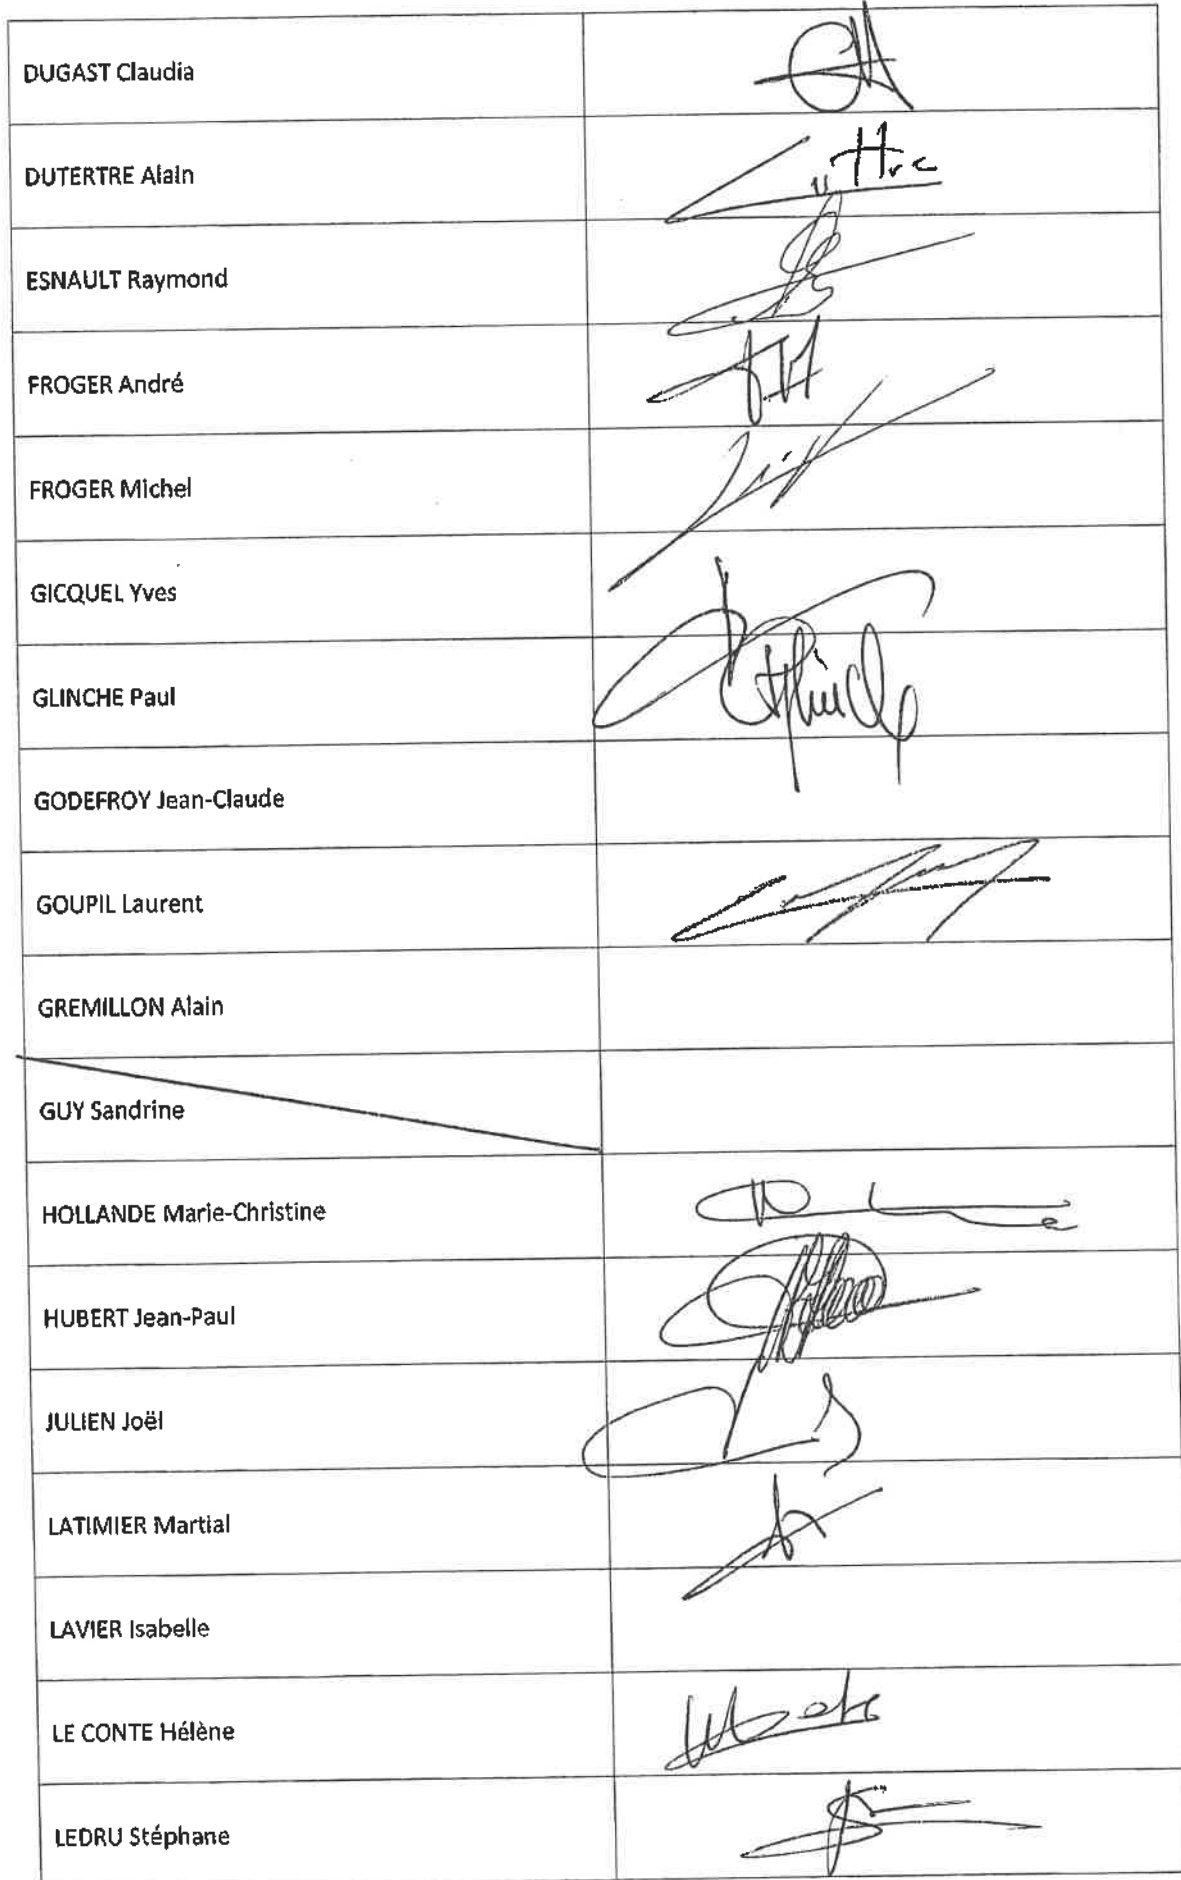 DUGAST Claudia
DUTERTRE Alain
ESNAULT Raymond
FROGER André
FROGER Michel
GICQUEL Yves
GLINCHE Paul
GODEFROY Jean-Claude
GOUPIL Laurent
GREMILLON Alain
GUY Sandrine
HOLLANDE Marie-Christine
HUBERT Jean-Paul
JULIEN Joël
LATIMIER Martial
LAVIER Isabelle
LE CONTE Hélène
LEDRU Stéphane